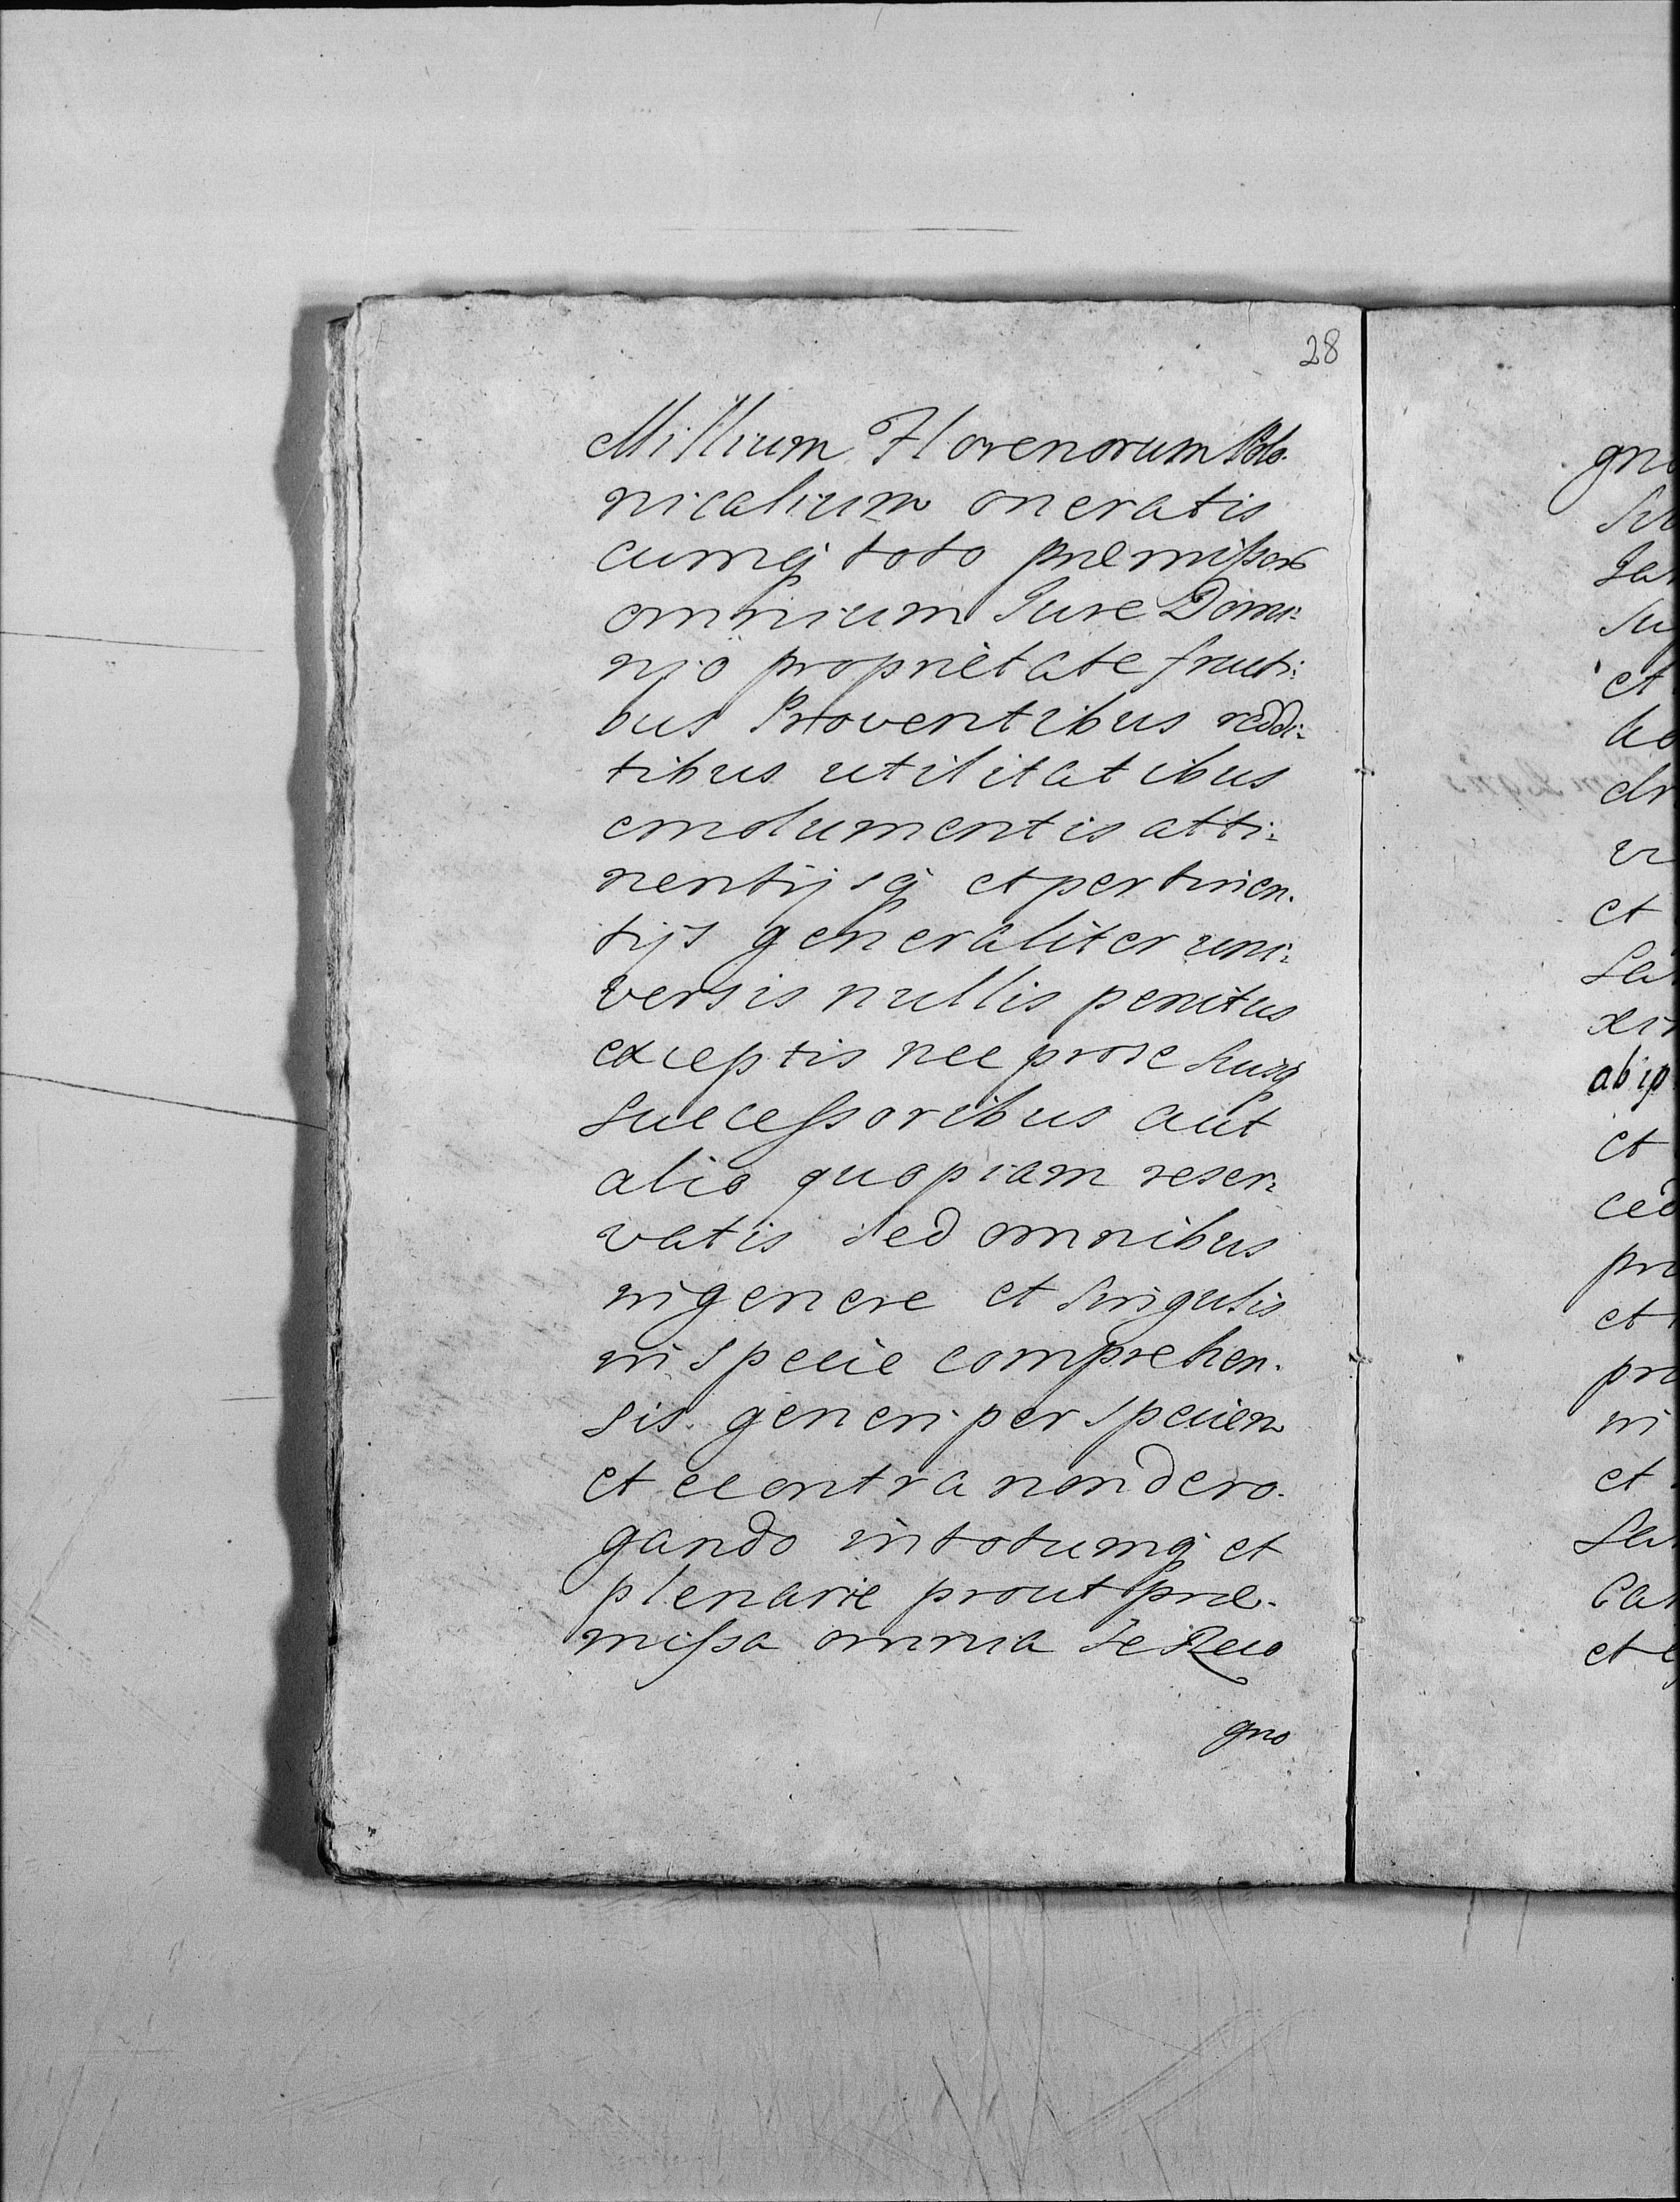 28
Millium Florenorum Polo-
nicalium oneratis
cumq toto præmissor
omnium Jure Domi-
nio proprietate fructi-
bus Proventibus reddi-
tibus utilitatibus
emolumentis atti-
nentijsq et pertinen-
tijs generaliter uni-
versis nullis penitus
exceptis nec pro se suisq
successoribus aut
alio quopiam reser-
vatis sed omnibus
in genere et singulis
in specie comprehen-
sis generi per speciem
et econtra non dero-
gando in totumq et
plenarie prout præ-
missa omnia se Reco
gno
gno
et
et
et
et
et